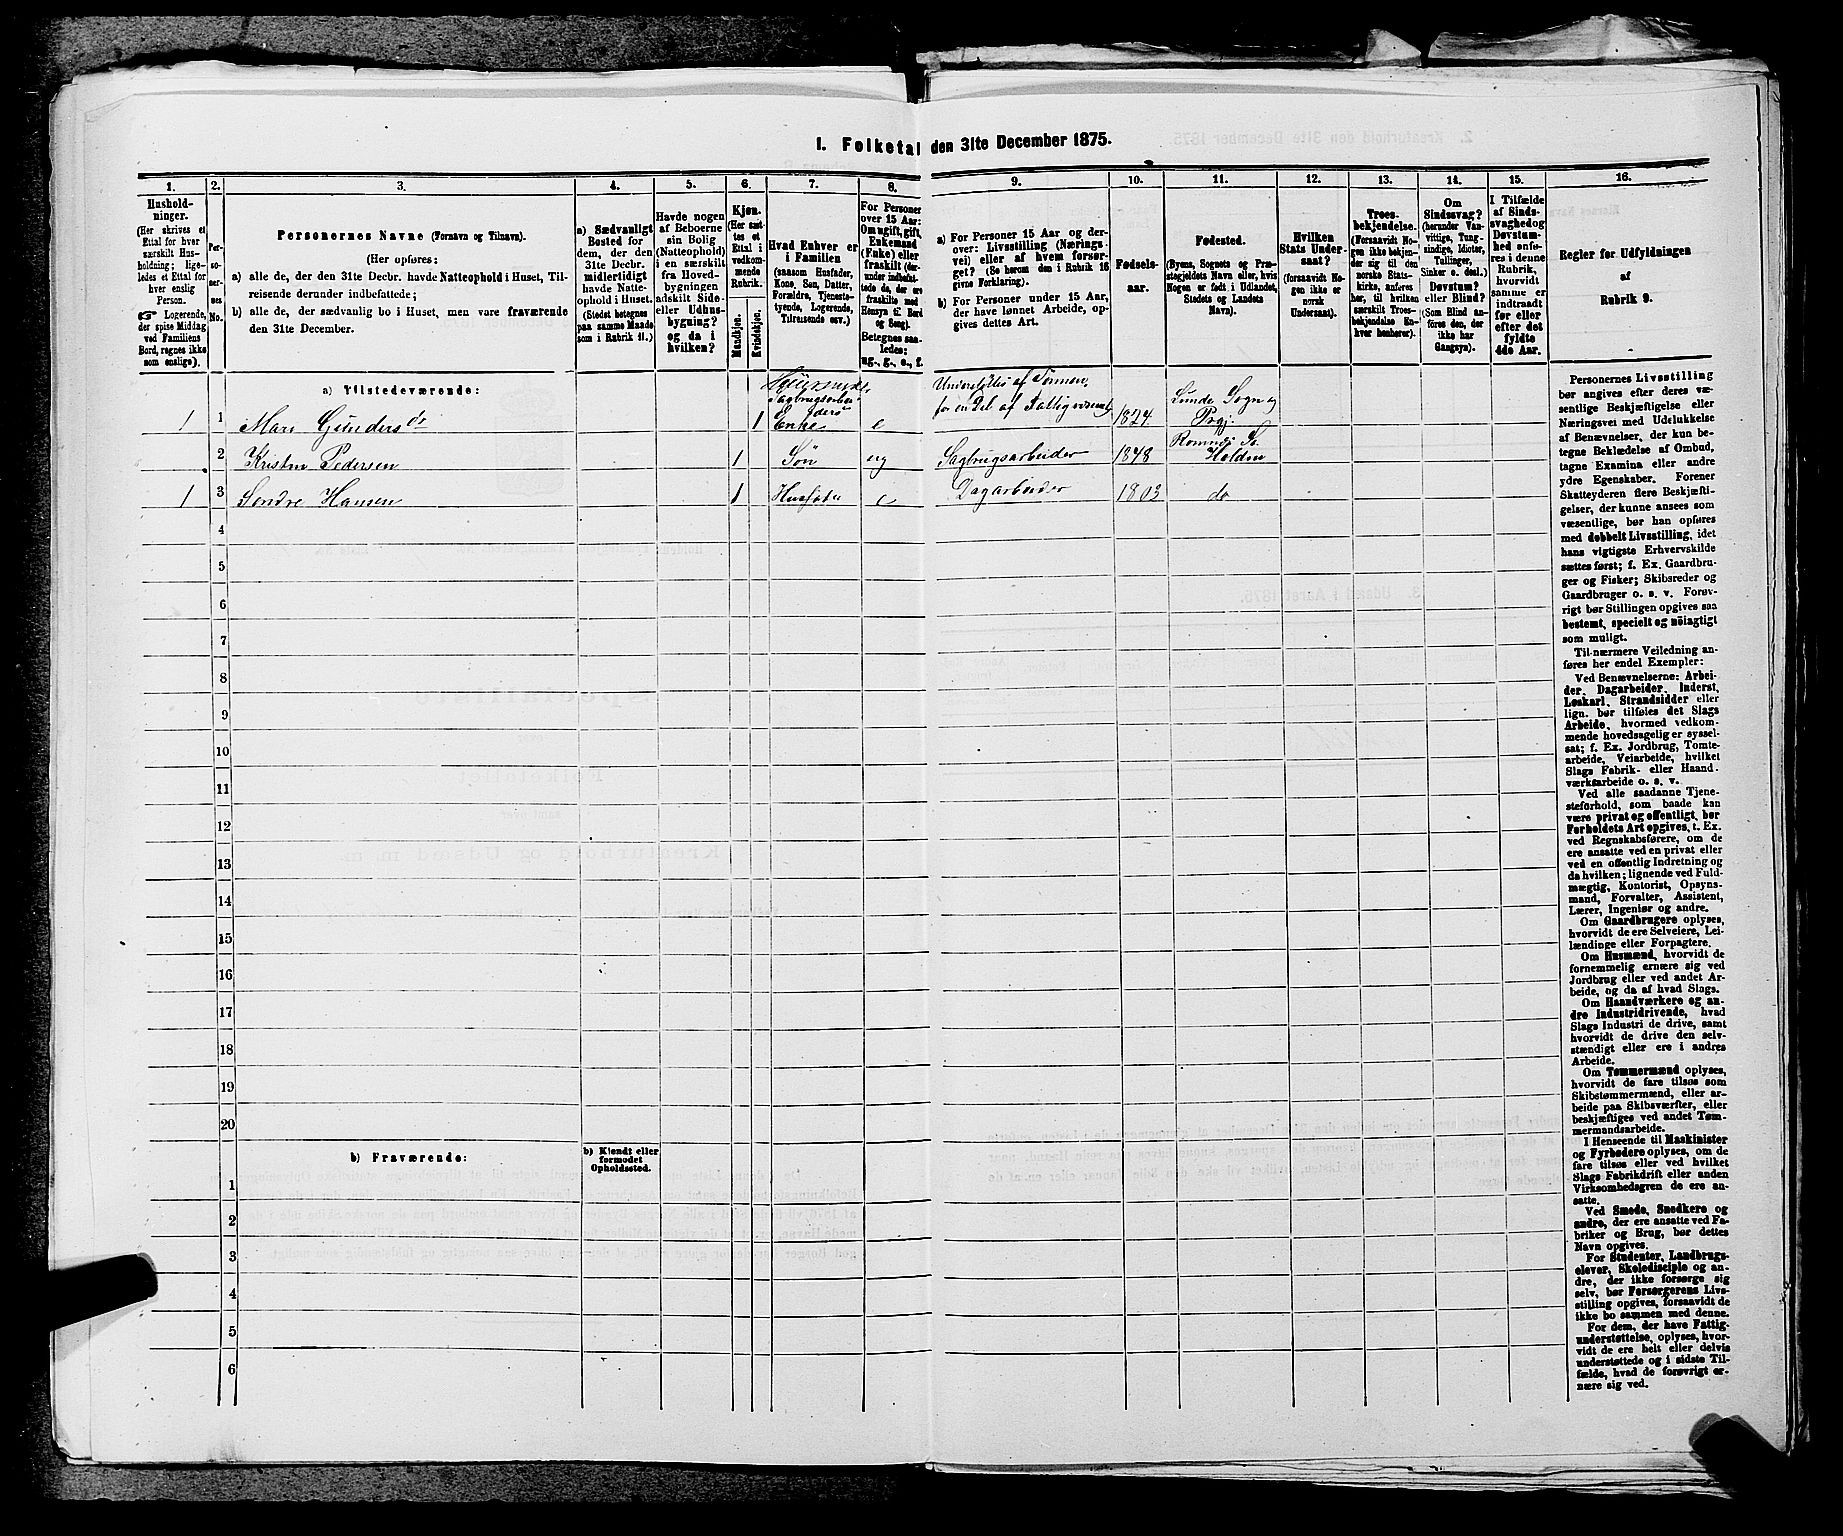 I. Folketal den 31te December 1875.
1. 2. 3. 4. 5. 6. 7. 8. 9. 10. 11. 12. 13. 14. 15. 16.
Hushold-
ninger.
(Her skrives et
Ettal for hver
særskilt Hus-
holdning; lige-
ledes et Ettal for
hver enslig
Person.
☞ Logerende,
der spise Middag
ved Familiens
Bord, regnes ikke
som enslige).
Per-
so-
ner-
nes
No.
Personernes Navne (Fornavn og Tilnavn).
(Her opføres:
a) alle de, der den 31te Decbr. havde Natteophold i Huset, Til-
reisende derunder indbefattede;
b) alle de, der sædvanlig bo i Huset, men vare fraværende
den 31te December.
a) Sædvanligt
Bosted for
dem, der den
31te Decbr.
midlertidigt
havde Natte-
ophold i Huset.
(Stedst betegnes
paa samme Maade
som i Rubrik 11.)
Havde nogen
af Beboerne
sin Bolig
(Natteophold)
i en særskilt
fra Hoved-
bygningen
adskilt Side-
eller Udhus-
bygning?
og da i
hvilken?
Kjøn.
(Her sæt-
tes et
Ettal i
vedkom-
mende
Rubrik.
Mandkjøn.
Kvindekjøn.
Hvad Enhver er
i Familien
(saasom Husfader,
Kone, Søn, Datter,
Forældre, Tjeneste-
tyende, Logerende,
Tilreisende osv.)
For Personer
over 15 Aar:
Om ugift, gift,
Enkemand
(Enke) eller
fraskilt (der-
under indbefat-
tede de, der ere
fraskilte med
Hensyn til Bord
og Seng).
Betegnes saa-
ledes:
ug., g., e., f.
a) For Personer 15 Aar og der-
over: Livsstilling (Nærings-
vei) eller af hvem forsør-
get? (Se herom den i Rubrik 16
givne Forklaring).
b) For Personer under 15 Aar,
der have lønnet Arbeide, op-
gives dettes Art.
Fødsels-
aar.
Fødested.
(Byens, Sognets og Præ-
stegjeldets Navn eller, hvis
Nogen er født i Udlandet,
Stedets og Landets
Navn).
Hvilken
Stats Under-
saat?
(forsaavidt No-
gen ikke er
norsk
Undersaat).
Troes-
bekjendelse.
(Forsaavidt No-
gen ikke bekjen-
der sig til den
norske Stats-
kirke, anføres
her, til hvilken
særskilt Troes-
bekjendelse En-
hver henhører).
Om
Sindssvag?
(herunder Van-
vittige, Tung-
sindige, Idioter,
Tullinger,
Sinker o. desl.)
Døvstum?
eller Blind?
(Som Blind an-
føres den, der
ikke har
Gangsyn).
I Tilfælde
af Sinds-
svaghed og
Døvstum-
hed anfø-
res i denne
Rubrik,
hvorvidt
samme er
indtraadt
før eller
efter det
fyldte
4de Aar.
Regler for Udfyldningen
af
Rubrik 9.
a) Tilstedeværende:
1 1 Mari Gundersdr 1 Sagbrugsarbei-
ders
Enke e Understøttes af Sønnen,
for en Del af Fattigvæsenet 1824 Lunde Sogn og
Prgj.
2 Kristen Pedersen 1 Søn ug Sagbrugsarbeider 1848 Romnæs So
Holden
1 3 Søndre Hansen 1 Husfader e Dagarbeider 1803 do
4
5
6
7
8
9
10
11
12
13
14
15
16
17
18
19
20
b) Fraværende:
b) Kjendt eller
formodet
Opholdssted.
1
2
3
4
5
6
Personernes Livsstilling
bør angives efter deres væ-
sentlige Beskjæftigelse eller
Næringsvei med Udelukkelse
af Benævnelser, der kun be-
tegne Beklædelse af Ombud,
tagne Examina eller andre
ydre Egenskaber. Forener
Skatteyderen flere Beskjæfti-
gelser, der kunne ansees som
væsentlige, bør han opføres
med dobbelt Livsstilling, idet
hans vigtigste Erhvervskilde
sættes først; f. Ex. Gaardbru-
ger og Fisker; Skibsreder og
Gaardbruger o. s. v. Forøv-
rigt bør Stillingen opgives saa
bestemt, specielt og nöiagtigt
som muligt.
Til nærmere Veiledning an-
føres her endel Exempler:
Ved Benævnelserne: Arbei-
der, Dagarbeider, Inderst,
Løskarl, Strandsidder eller
lign. bør tilføies det Slags
Arbeide, hvormed vedkom-
mende hovedsagelig er syssel-
sat; f. Ex. Jordbrug, Tomte-
arbeide, Veiarbeide, hvilket
Slags Fabrik- eller Haand-
værksarbeide o. s. v.
Ved alle saadanne Tjene-
steforhold, som baade kan
være privat og offentligt, bør
Forholdets Art opgives, t. Ex.
ved Regnskabsførere, om de
ere ansatte ved en privat eller
ved en offentlig Indretning og
da hvilken; lignende ved Fuld-
mægtig, Kontorist, Opsyns-
mand, Forvalter, Assistent,
Lærer, Ingeniør og andre.
Om Gaardbrugere oplyses,
hvorvidt de ere Selveiere, Lei-
lændinge eller Forpagtere.
Om Husmænd, hvorvidt de
fornemmelig ernære sig ved
Jordbrug eller ved andet Ar-
beide, og da af hvad Slags.
Om Haandværkere og an-
dre Industridrivende, hvad
Slags Industri de drive, samt
hvorvidt de drive den selv-
stændigt eller ere i andres
Arbeide.
Om Tømmermænd oplyses,
hvorvidt de fare tilsøs som
Skibstømmermænd, eller ar-
beide paa Skibsværfter, eller
beskjæftiges ved andet Tøm-
mermandsarbeide.
I Henseende til Maskinister
og Fyrbødere oplyses, om de
fare tilsøs eller ved hvilket
Slags Fabrikdrift eller anden
Virksomhedsgren de ere an-
satte.
Ved Smede, Snedkere og
andre, der ere ansatte ved Fa-
briker og Brug, bør dettes
Navn opgives.
For Studenter, Landbrugs-
elever, Skoledisciple og an-
dre, der ikke forsørge sig
selv, bør Forsørgerens Livs-
stilling opgives, forsaavidt de
ikke bo sammen med denne.
For dem, der have Fattig-
understøttelse, oplyses, hvor-
vidt de ere helt eller delvis
understøttede og i sidste Til-
fælde, hvad de forøvrigt er-
nære sig ved.